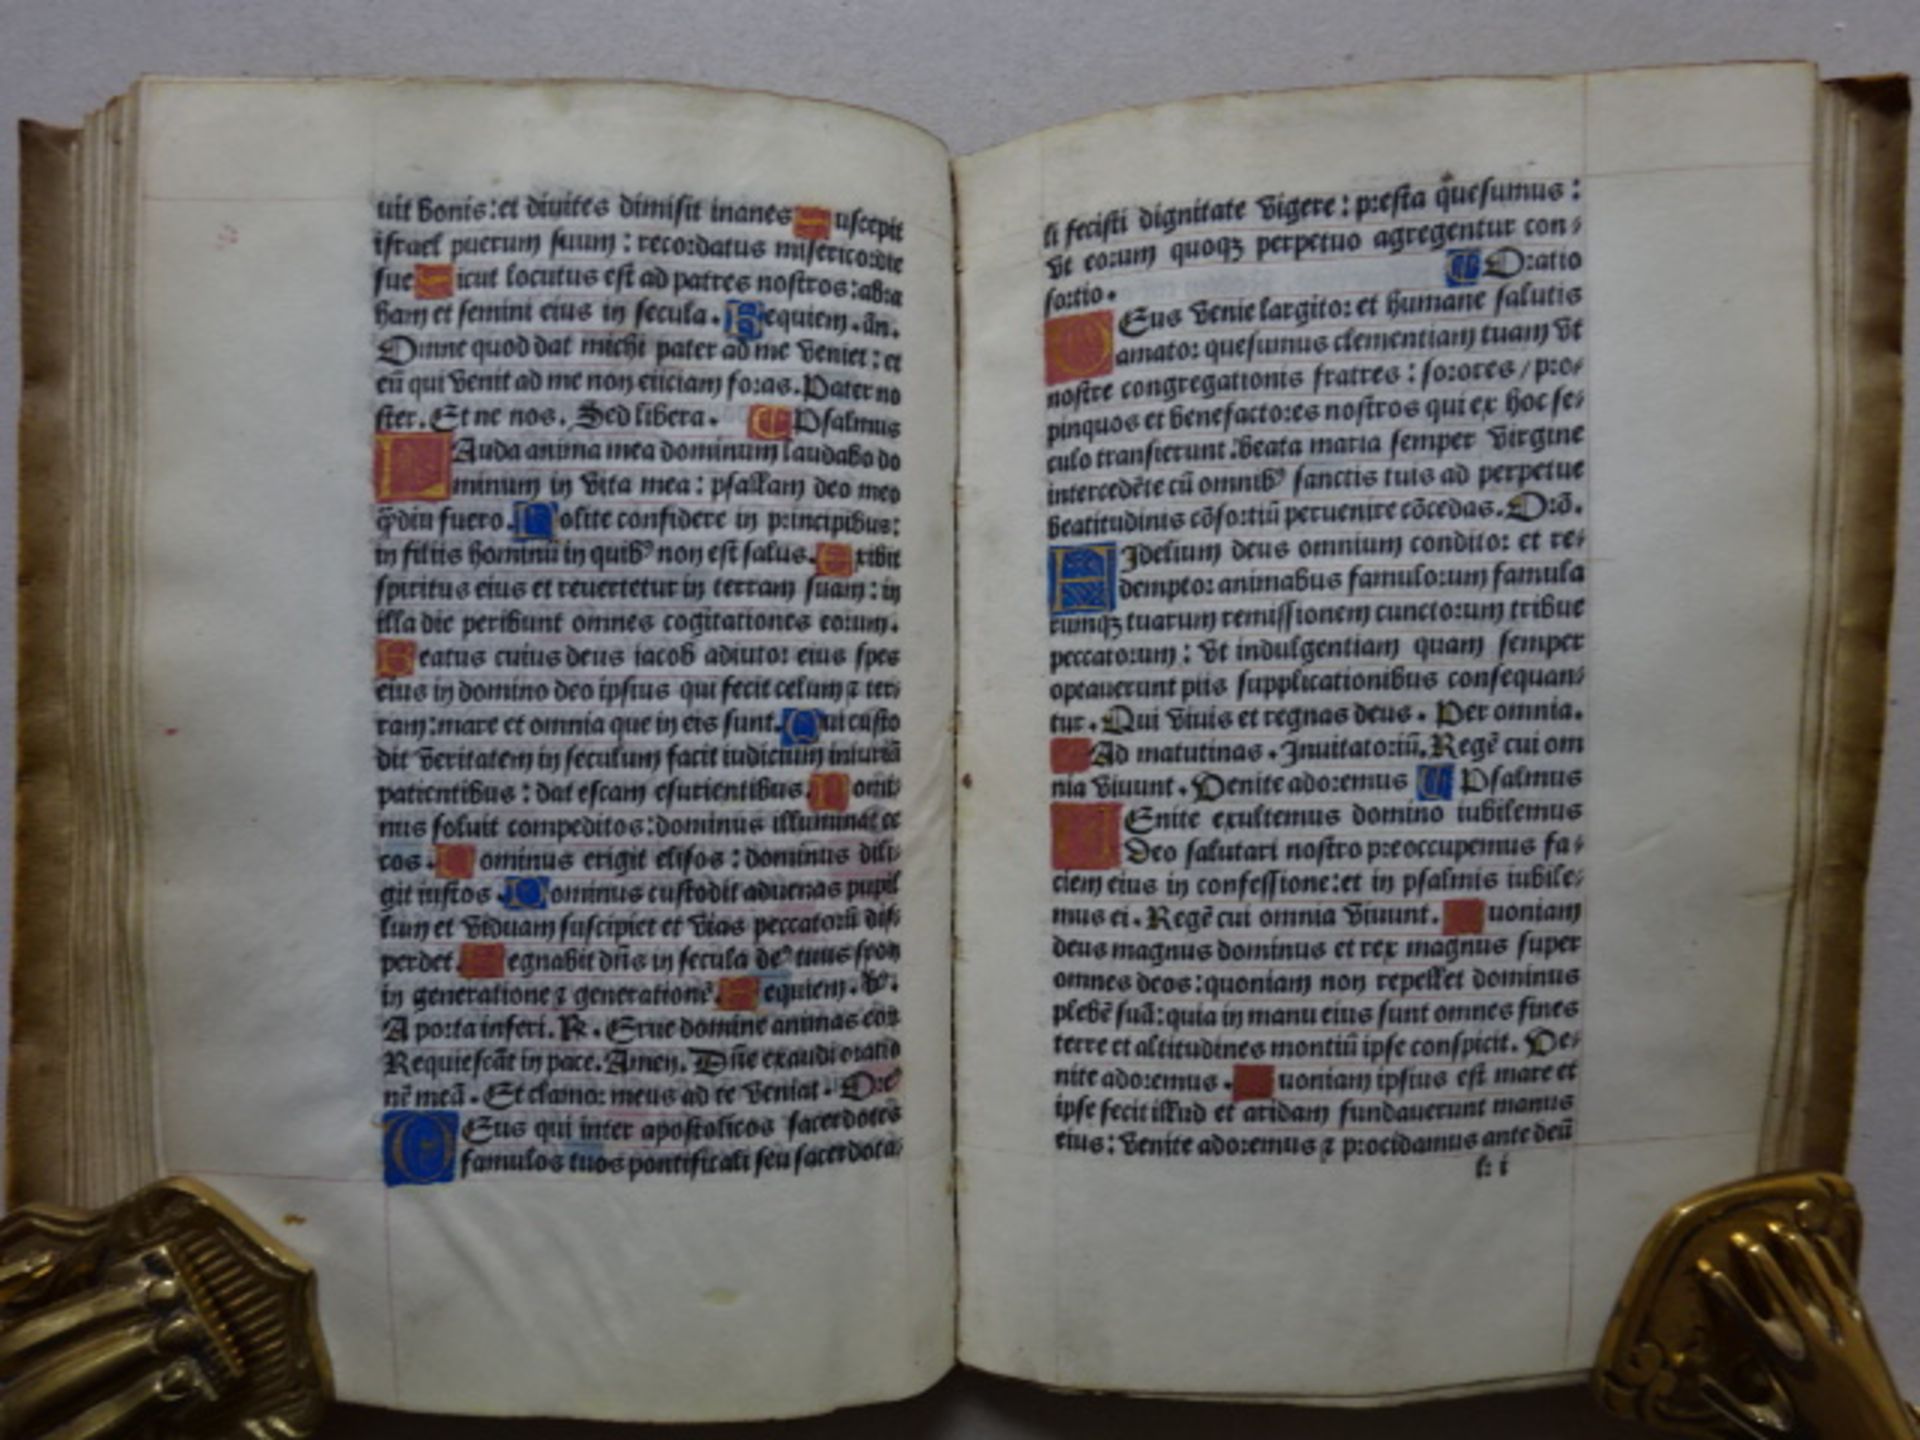 uit bonis: et diuites dimisit inanes Suscepit
israel puerum suum: recordatus misericordie
sue Sicut locutus est ad patres nostros: abra
ham et semini eius in secula. Requiem. añ.
Omne quod dat michi pater ad me veniet: et
eū qui venit ad me non eiiciam foras. Pater no
ster. Et ne nos. Sed libera. ¶ Psalmus
LAuda anima mea dominum laudabo do
minum in vita mea: psallam deo meo
q̄diu fuero. Nolite confidere in principibus:
in filiis hominū in quibꝰ non est salus. Exibit
spiritus eius et reuertetur in terram suam: in
illa die peribunt omnes cogitationes eorum.
Beatus cuius deus iacob adiutor eius spes
eius in domino deo ipsius qui fecit celum ⁊ ter-
ram: mare et omnia que in eis sunt. Qui custo
dit veritatem in seculum facit iudicium iniuriā
patientibus: dat escam esurientibus. Domi-
nus soluit compeditos: dominus illuminat ce
cos. Dominus erigit elisos: dominus dili-
git iustos. Dominus custodit aduenas pupil
lum et viduam suscipiet et vias peccatorū dis-
perdet. Regnabit dn̄s in secula deꝰ tuus syon
in generatione ⁊ generationē. Requiem. ꝟ.
A porta inferi. ℟. Erue domine animas eoꝝ
Requiescāt in pace. Amen. Dn̄e exaudi oratio
nē meā. Et clamor meus ad te veniat. Ore
DEus qui inter apostolicos sacerdotes
famulos tuos pontificali seu sacerdota-
li fecisti dignitate vigere: presta quesumus:
vt eorum quoqꝫ perpetuo agregentur con-
sortio. ¶ Oratio
DEus venie largitor et humane salutis
amator quesumus clementiam tuam vt
nostre congregationis fratres: sorores / pro-
pinquos et benefactores nostros qui ex hoc se-
culo transierunt. beata maria semper virgine
intercedēte cū omnibꝰ sanctis tuis ad perpetue
beatitudinis cōsortiū peruenire cōcedas. Orō.
FIdelium deus omnium conditor et re-
demptor animabus famulorum famula
rumqꝫ tuarum remissionem cunctorum tribue
peccatorum: vt indulgentiam quam semper
optauerunt piis supplicationibus consequan-
tur. Qui viuis et regnas deus. Per omnia.
Ad matutinas. Inuitatoriū. Regē cui om
nia viuunt. Venite adoremus ¶ Psalmus
VEnite exultemus domino iubilemus
deo salutari nostro preoccupemus fa-
ciem eius in confessione: et in psalmis iubile-
mus ei. Regē cui omnia viuunt. Quoniam
deus magnus dominus et rex magnus super
omnes deos: quoniam non repellet dominus
plebē suā: quia in manu eius sunt omnes fines
terre et altitudines montiū ipse conspicit. Ve-
nite adoremus. Quoniam ipsius est mare et
ipse fecit illud et aridam fundauerunt manus
eius: venite adoremus ⁊ procidamus ante deū